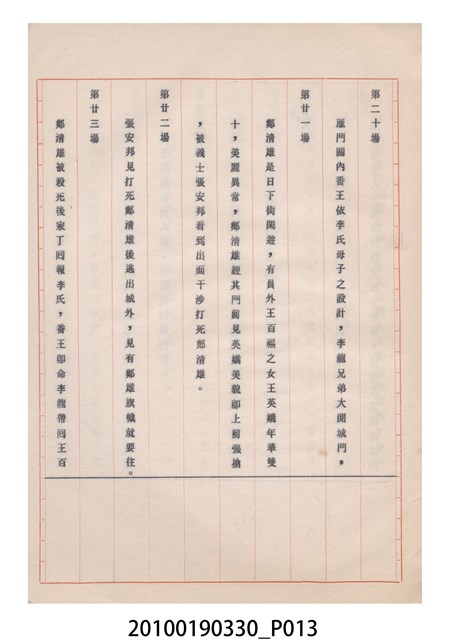 第二十場
雁門關內番王依李氏母子之設計，李龍兄弟大開城門。
第廿一場
鄭清雄是日下街閒遊，有員外王百福之女王英嬌年華雙
十，美麗異常，鄭清雄經其門前見英嬌美貌卽上前强搶
，被義士張安邦看到出面干涉打死鄭清雄。
第廿二場
張安邦見打死鄭清雄後逃出城外，見有鄭雄旗幟就要往。
第廿三場
鄭清雄被殺死後家丁回報李氏，番王卽命李龍帶回王百
20100190330_P013